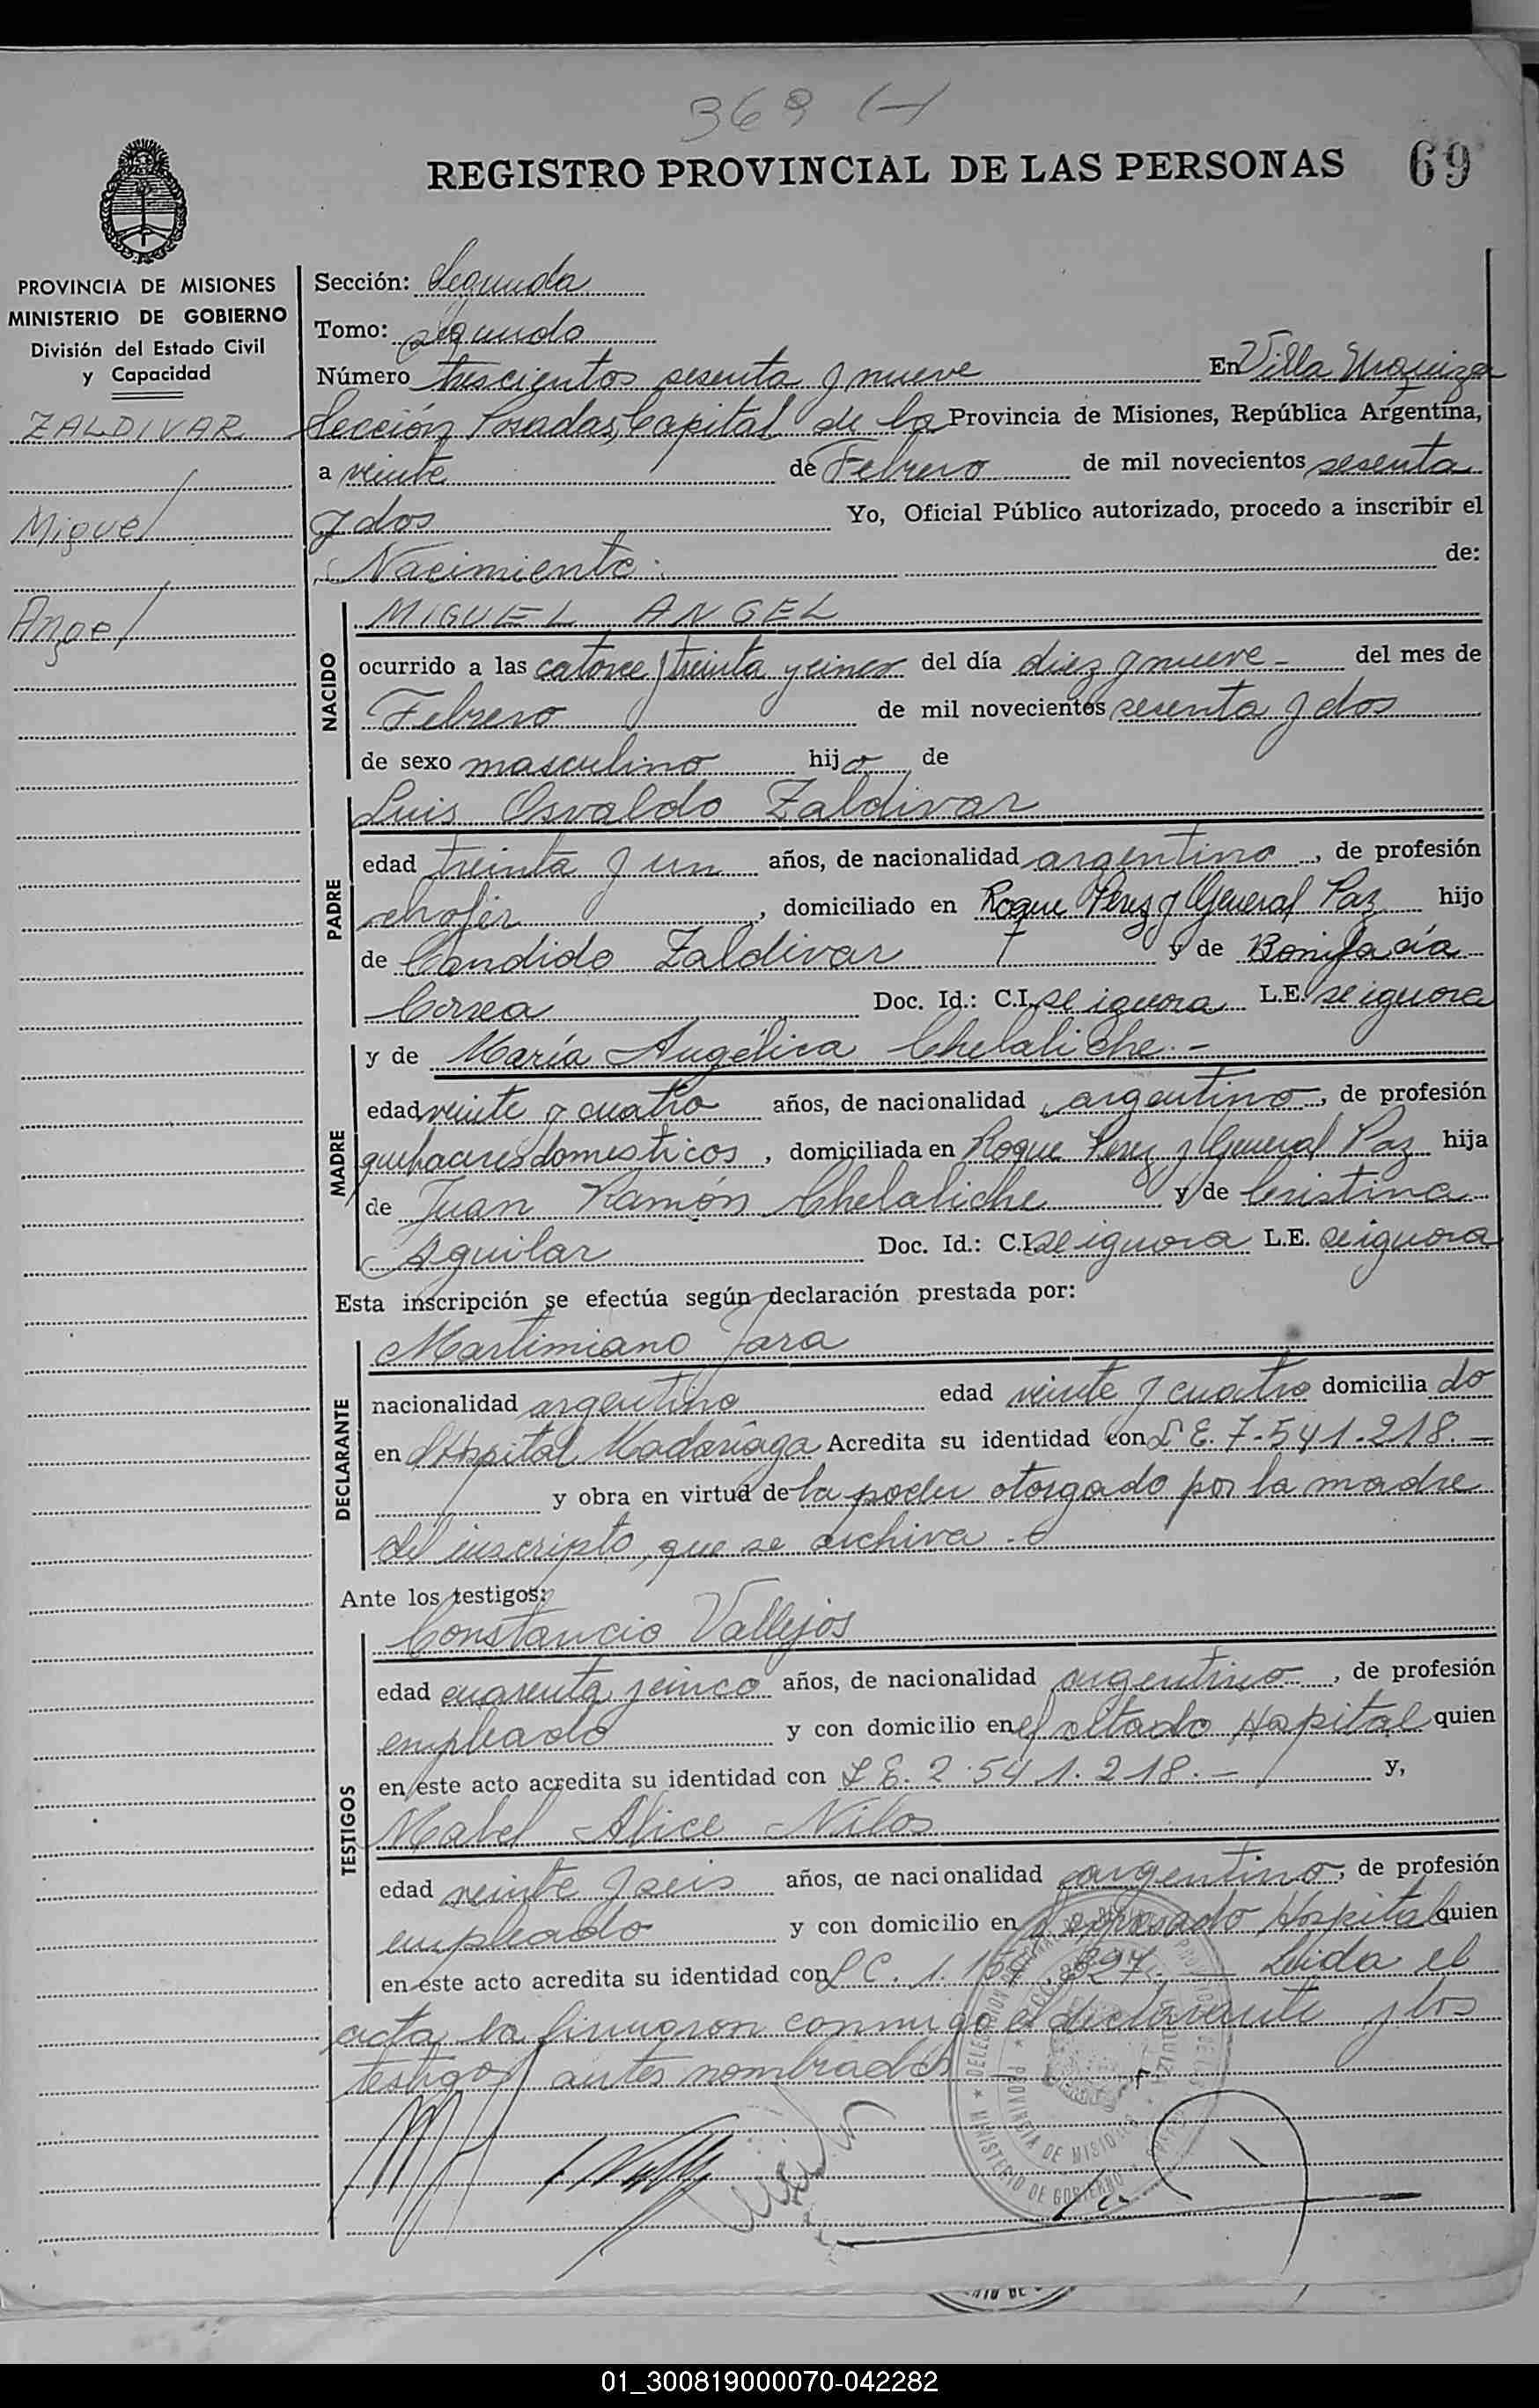 369 (-)
REGISTRO PROVINCIAL DE LAS PERSONAS 69
PROVINCIA DE MISIONES
MINISTERIO DE GOBIERNO
División del Estado Civil
y Capacidad
ZALDIVAR
Miguel
Angel
Sección: Segunda
Tomo: segundo
Número trescientos sesenta y nueve En Villa Urquiza
Sección Posadas, Capital de la Provincia de Misiones, República Argentina,
a veinte de Febrero de mil novecientos sesenta
y dos Yo, Oficial Público autorizado, procedo a inscribir el
Nacimiento de:
NACIDO
MIGUEL ANGEL
ocurrido a las catorce y treinta y cinco del día diez y nueve - del mes de
Febrero de mil novecientos sesenta y dos
de sexo masculino hijo de
PADRE
Luis Osvaldo Zaldivar
edad treinta y un años, de nacionalidad argentino, de profesión
chofer, domiciliado en Roque Perez y General Paz hijo
de Candido Zaldivar y de Bonifacia
Correa Doc. Id.: C.I. se ignora L.E. se ignora
MADRE
y de María Angélica Chelaliche. -
edad veinte y cuatro años, de nacionalidad argentino, de profesión
quehaceres domesticos, domiciliada en Roque Perez y General Paz hija
de Juan Ramón Chelaliche y de Cristina
Aguilar Doc. Id.: C.I. se ignora L.E. se ignora
Esta inscripción se efectúa según declaración prestada por:
DECLARANTE
Martimiano Jara
nacionalidad argentino edad veinte y cuatro domiciliado
en Hospital Madariaga Acredita su identidad con L E. 7.541.218. -
y obra en virtud de la poder otorgado por la madre
del inscripto, que se archiva.
Ante los testigos:
TESTIGOS
Constancio Vallejos
edad cuarenta y cinco años, de nacionalidad argentino, de profesión
empleado y con domicilio en el citado Hospital quien
en este acto acredita su identidad con L E. 2.541.218. - y,
Mabel Alice Nilos
edad veinte y seis años, de nacionalidad argentino, de profesión
empleado y con domicilio en expresado Hospital quien
en este acto acredita su identidad con L C. 1. Leida el
acta la firmaron conmigo el declarante y los
testigos antes nombrados
MINISTERIO DE GOBIERNO
PROVINCIA DE MISIONES
01_300819000070-042282